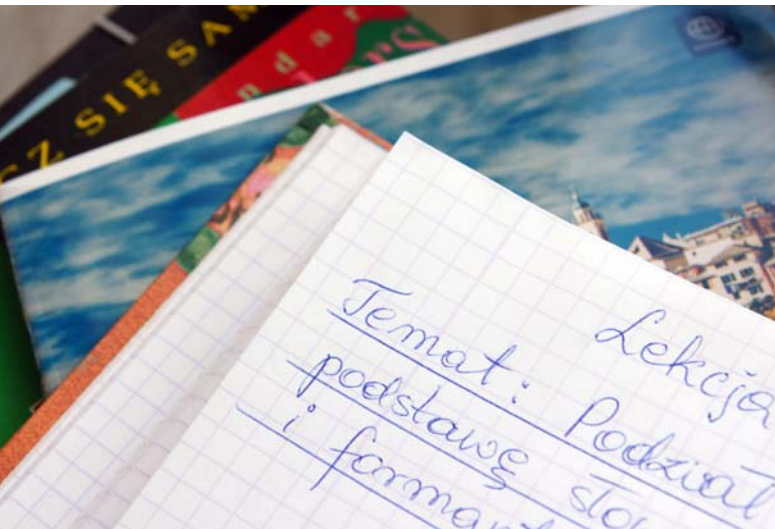 CZ SIĘ SAM
ndar
rs
Lekcja
Temat: Podział
podstawę słow
i formant